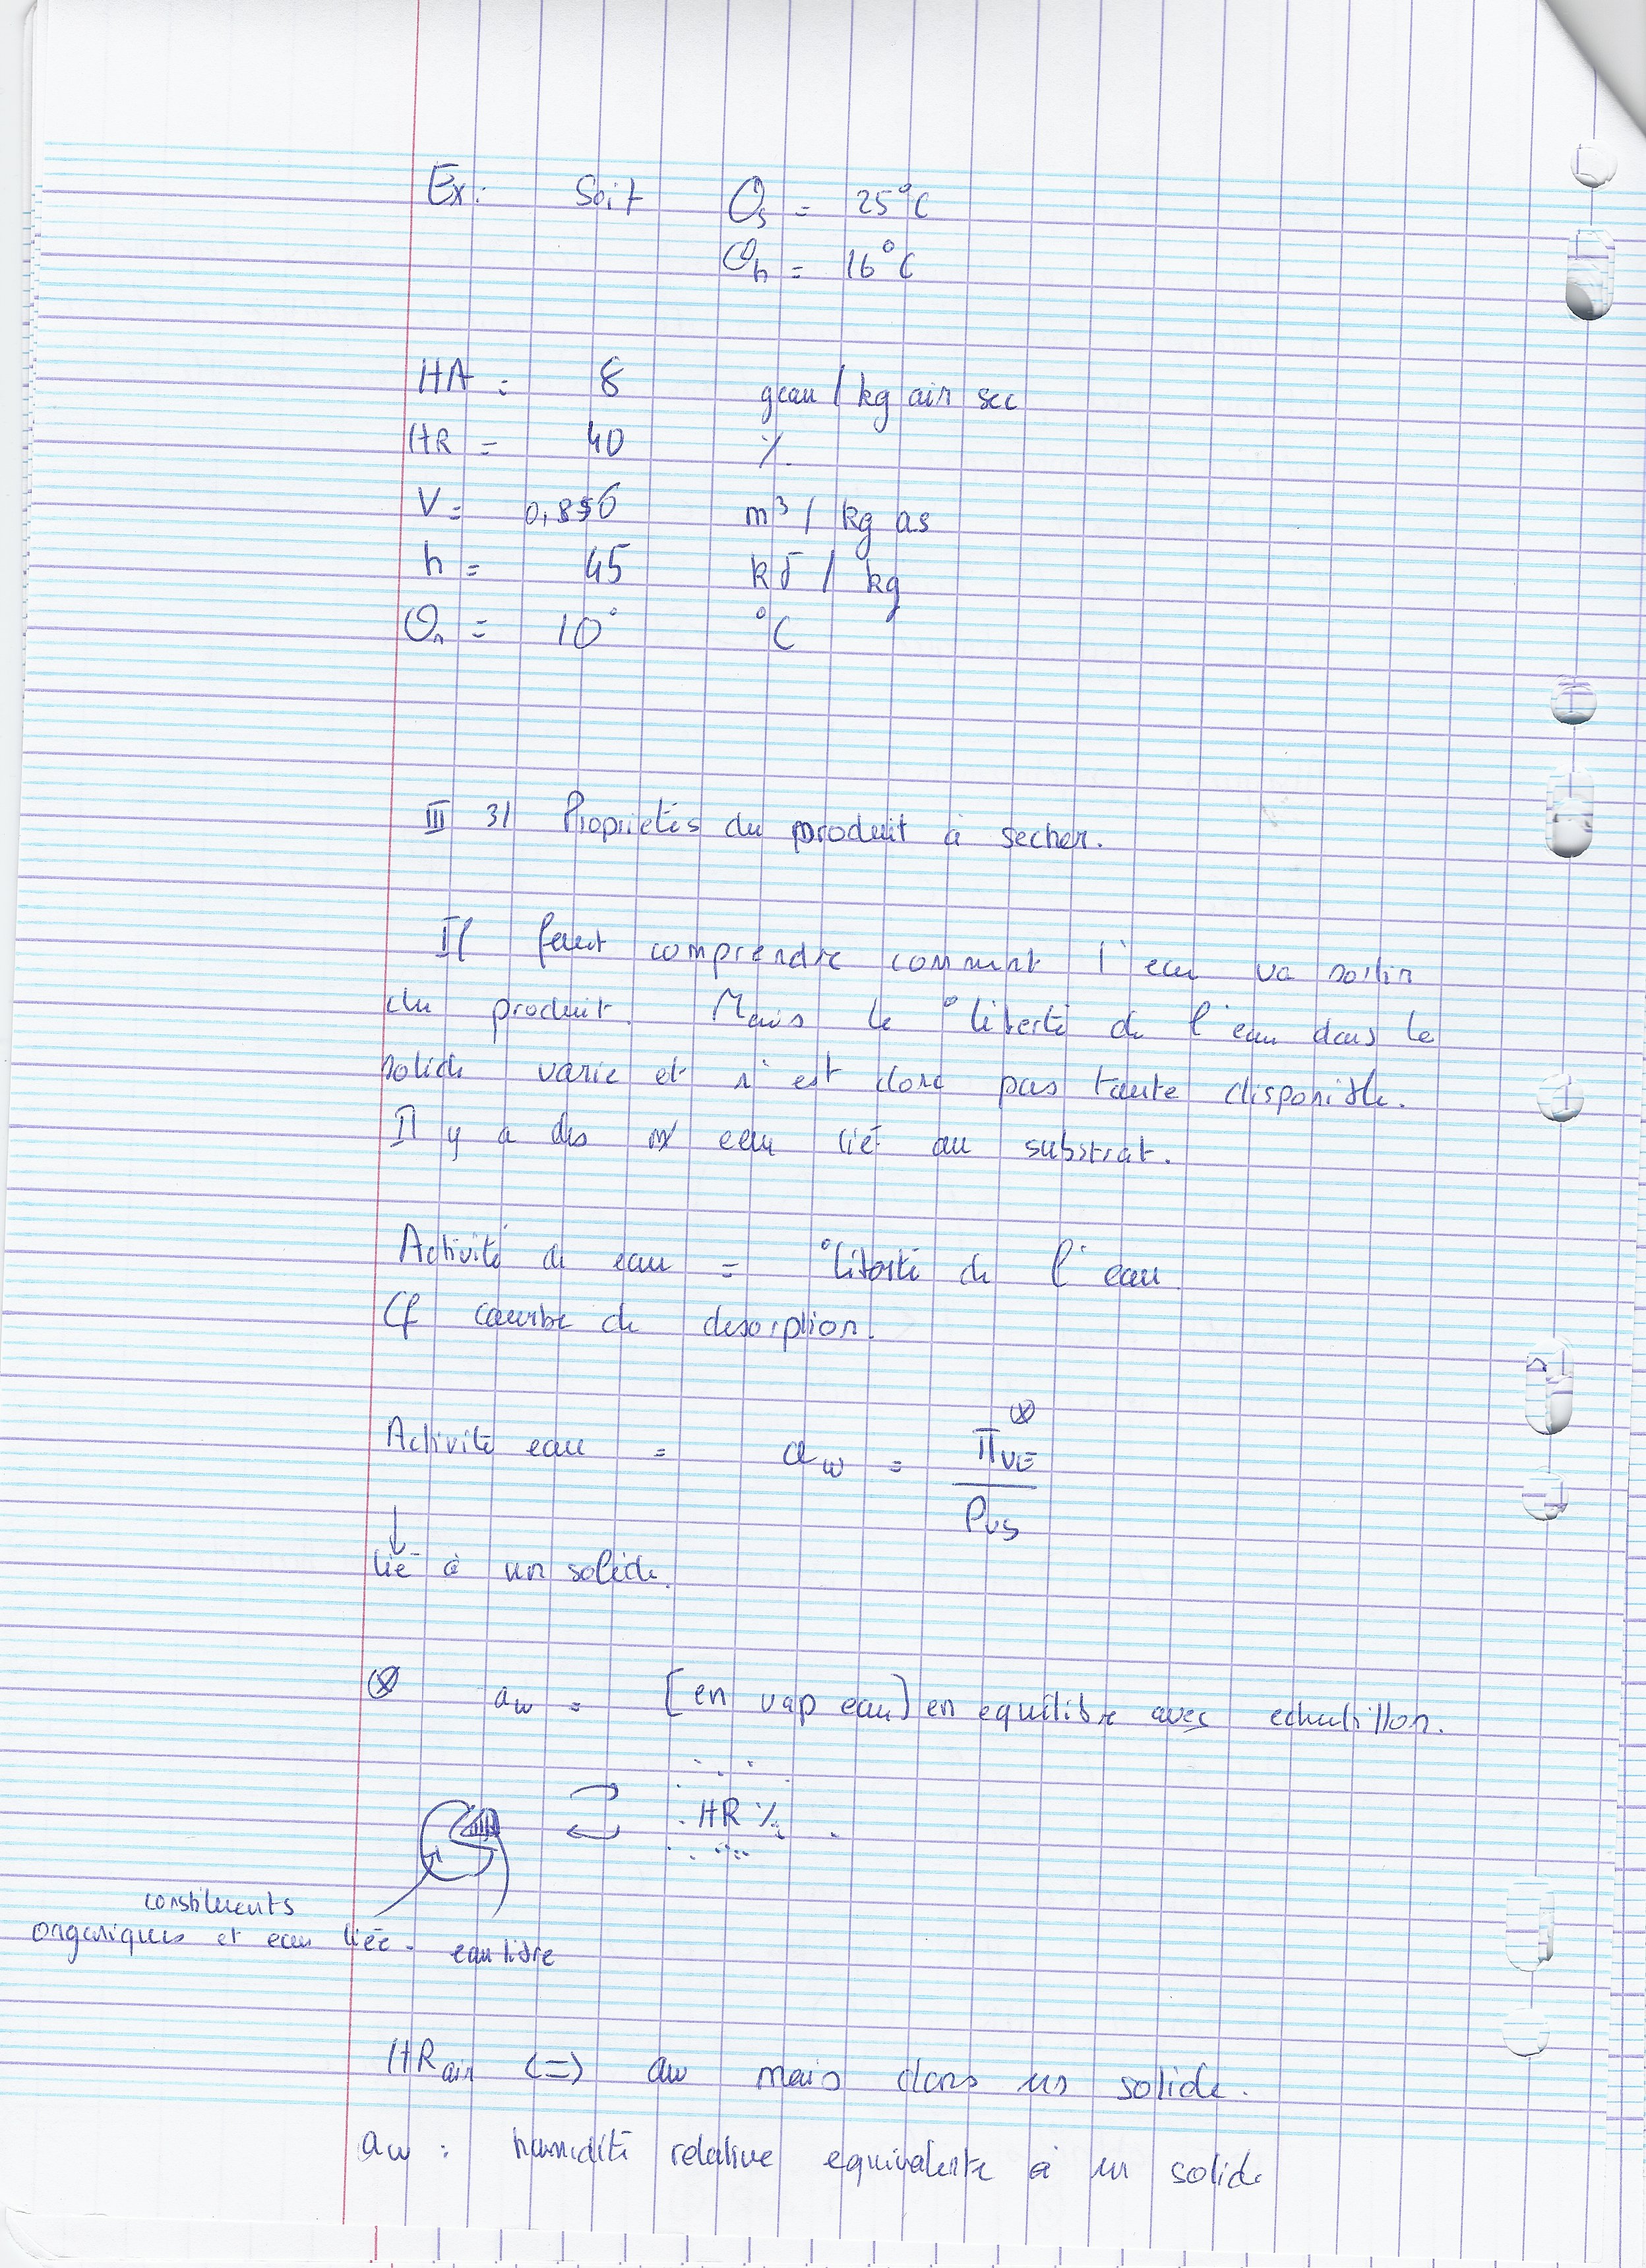 Ex: Soit Θs = 25°C
Θh = 16°C
HA = 8 geau / kg air sec
HR = 40 %
V = 0,856 m³ / kg as
h = 45 kJ / kg
Θr = 10° °C
III 3) Proprietés du produit à secher.
Il faut comprendre comment l'eau va sortir
du produit. Mais le °liberté de l'eau dans le
solide varie et n'est donc pas toute disponible.
Il y a des eau lié au substrat.
Activité de eau = °liberté de l'eau
Cf courbe de desorption.
Activité eau = aw = πVE ⊗ / PVS
↓
lié à un solide.
⊗ aw = [en vap eau] en equilibre avec echantillon.
HR %
constituents
organiques et eau liée.
eau libre
HRair <=> aw mais dans un solide.
aw : humidité relative equivalente à un solide